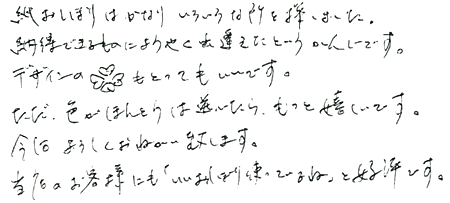 紙おしぼりはかなりいろいろな所を探しました。
納得できるものにようやく出逢えたというかんじです。
デザインの もとってもいいです。
ただ、色がほんとうは選べたら、もっと嬉しいです。
今後ようしくおねがい致します。
当店のお客様にも「いいおしぼり使っているね」と好評です。